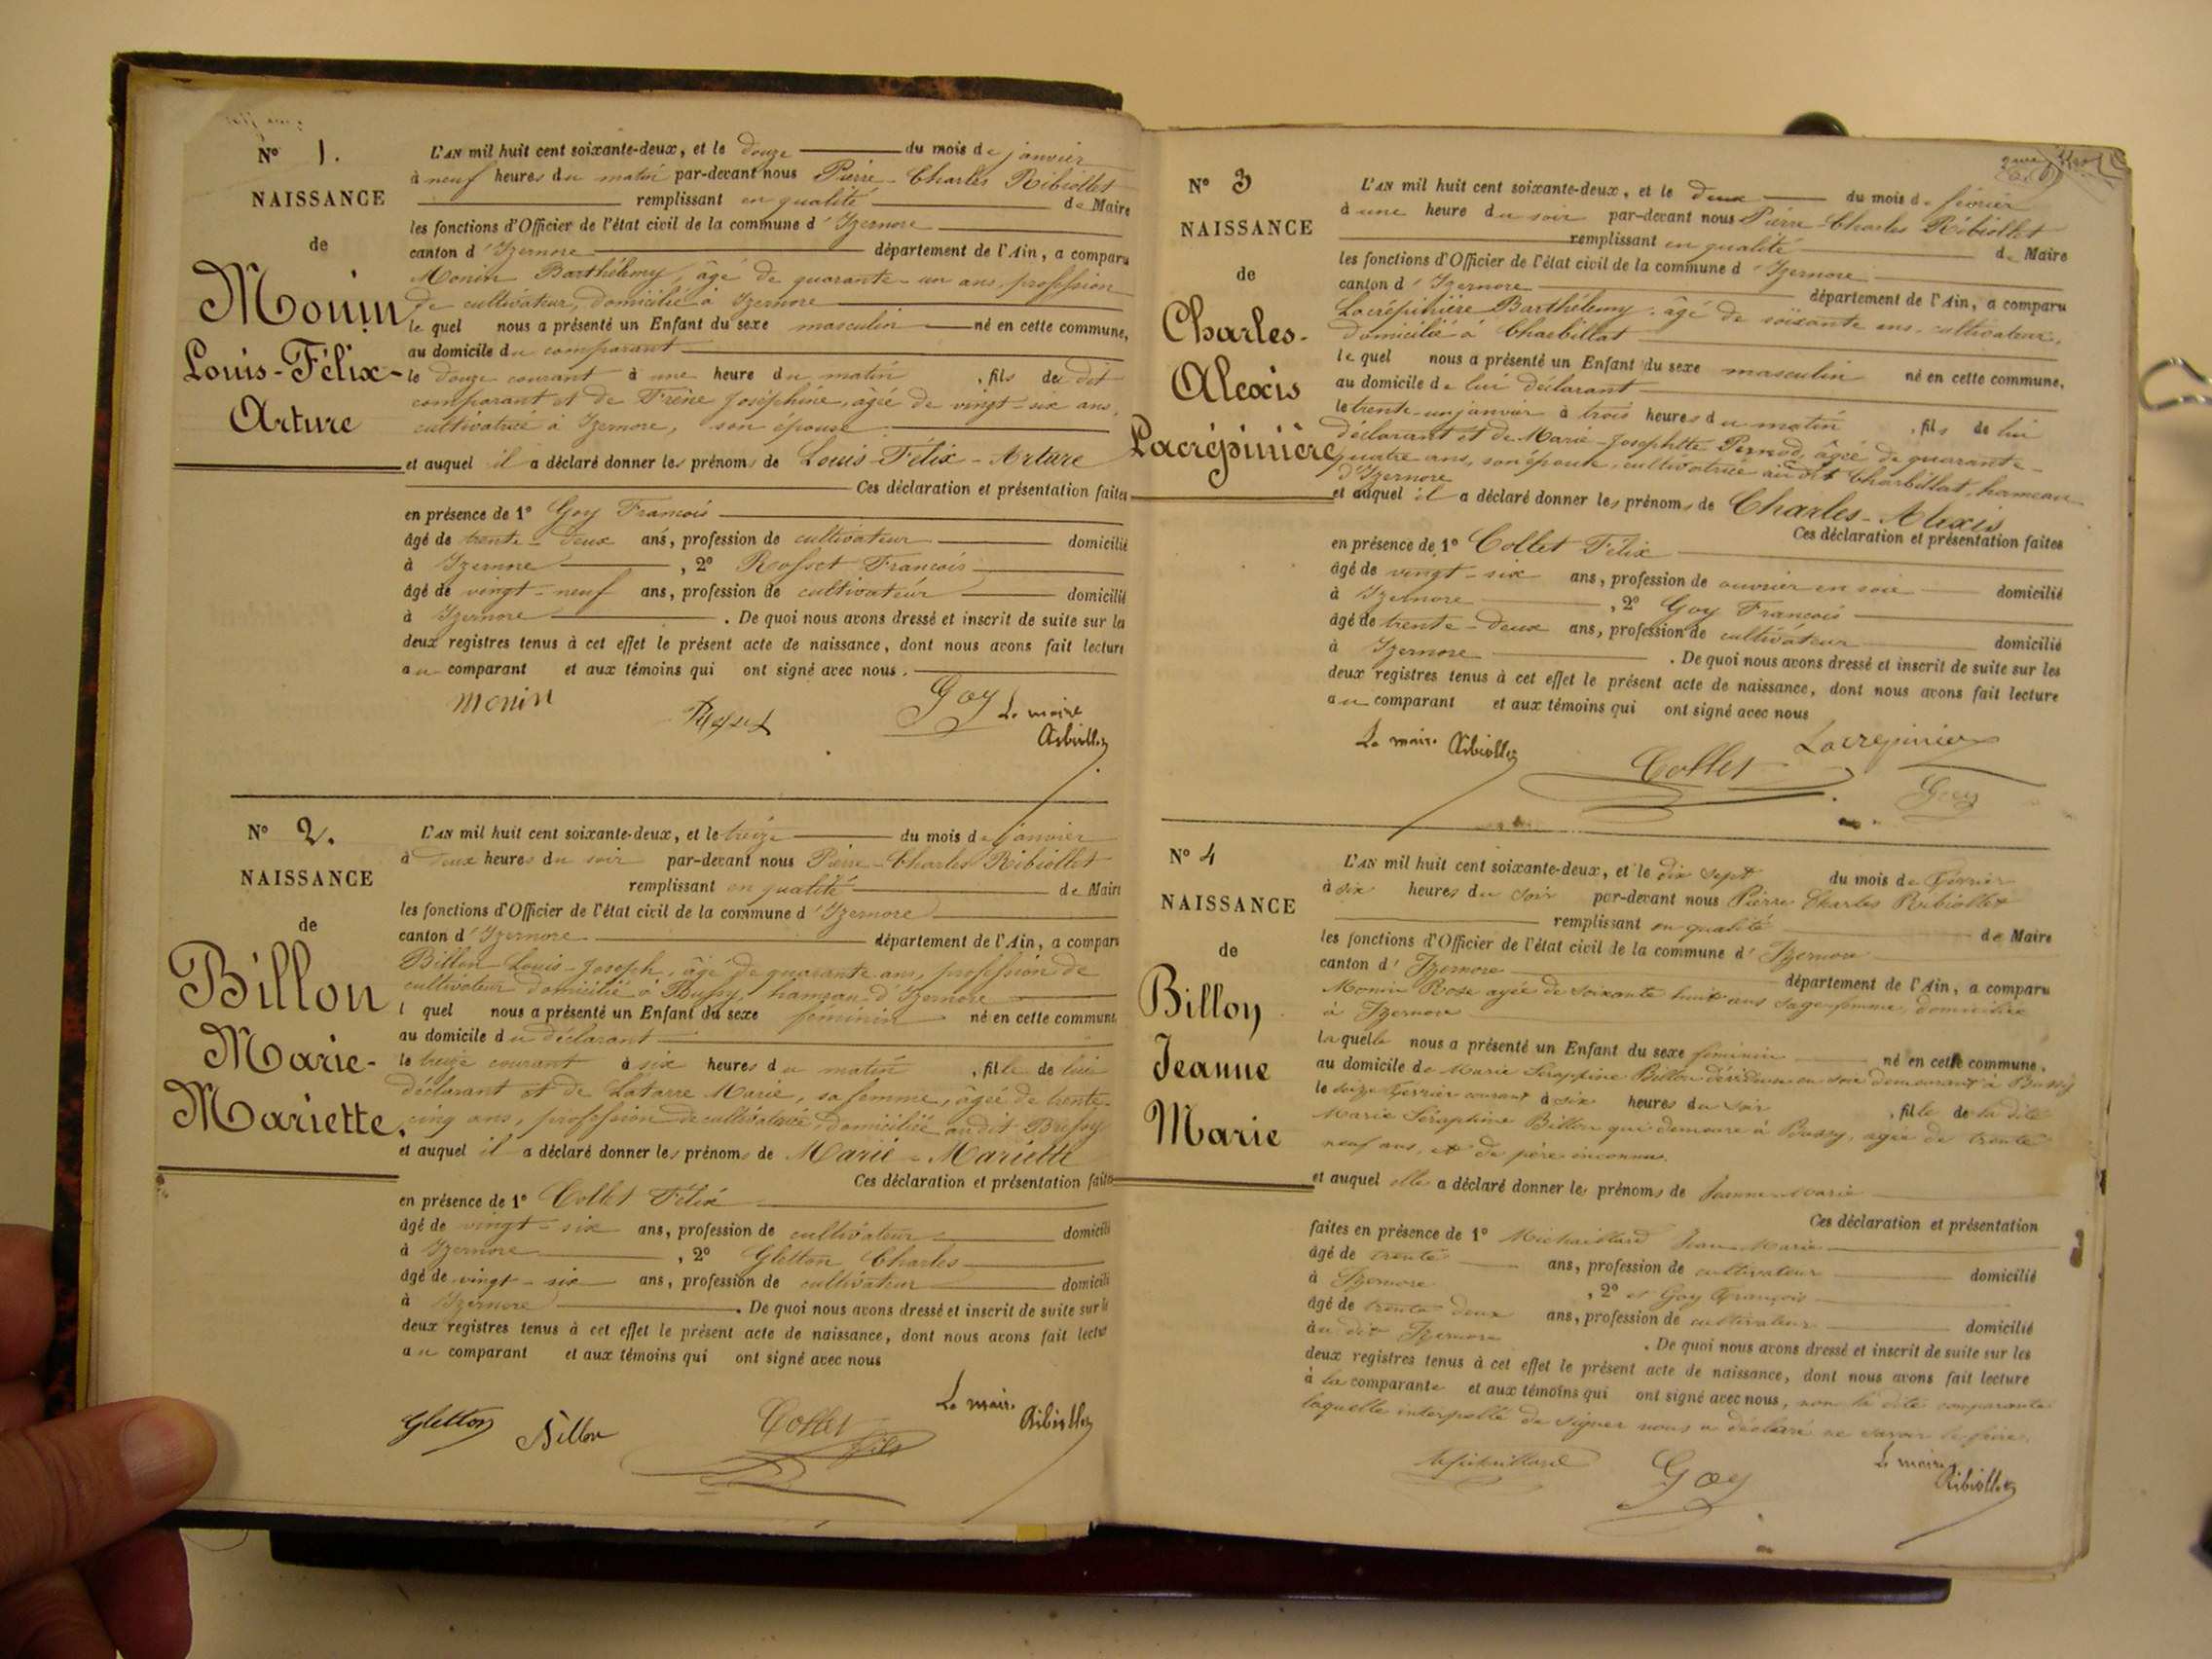 N° 1.
NAISSANCE
de
Monin
Louis-Félix-
Arture
L'AN mil huit cent soixante-deux, et le douze du mois de janvier
à neuf heures du matin par-devant nous Pierre-Charles Ribiollet
remplissant en qualité de Maire
les fonctions d'Officier de l'état civil de la commune d'Izernore
canton d'Izernore département de l'Ain, a comparu
Monin Barthélemy, âgé de quarante-un ans, profession
de cultivateur, domicilié à Izernore
le quel nous a présenté un Enfant du sexe masculin né en cette commune,
au domicile du comparant
le douze courant à une heure du matin, fils du dit
comparant et de Frène Joséphine, âgée de vingt-six ans,
cultivatrice à Izernore, son épouse
et auquel il a déclaré donner les prénoms de Louis-Félix-Arture
Ces déclaration et présentation faites
en présence de 1° Goy François
âgé de trente-deux ans, profession de cultivateur domicilié
à Izernore, 2° Rosset François
âgé de vingt-neuf ans, profession de cultivateur domicilié
à Izernore. De quoi nous avons dressé et inscrit de suite sur les
deux registres tenus à cet effet le présent acte de naissance, dont nous avons fait lecture
au comparant et aux témoins qui ont signé avec nous.
monin Rosset Goy Le maire
Ribiollet
N° 2.
NAISSANCE
de
Billon
Marie-
Mariette.
L'AN mil huit cent soixante-deux, et le treize du mois de janvier
à deux heures du soir par-devant nous Pierre-Charles Ribiollet
remplissant en qualité de Maire
les fonctions d'Officier de l'état civil de la commune d'Izernore
canton d'Izernore département de l'Ain, a comparu
Billon Louis-Joseph, âgé de quarante ans, profession de
cultivateur domicilié à Bussy, hameau d'Izernore
l quel nous a présenté un Enfant du sexe féminin né en cette commune
au domicile du déclarant
le treize courant à six heures du matin, fille de lui
déclarant et de Latarre Marie, sa femme, âgée de trente-
cinq ans, profession de cultivatrice, domiciliée audit Bussy
et auquel il a déclaré donner les prénoms de Marie-Mariette
Ces déclaration et présentation faites
en présence de 1° Collet Félix
âgé de vingt-six ans, profession de cultivateur domicili
à Izernore, 2° Gletton Charles
âgé de vingt-six ans, profession de cultivateur domicili
à Izernore. De quoi nous avons dressé et inscrit de suite sur le
deux registres tenus à cet effet le présent acte de naissance, dont nous avons fait lectur
au comparant et aux témoins qui ont signé avec nous
Gletton Billon Collet fils Le maire
Ribiollet
N° 3
NAISSANCE
de
Charles-
Alexis
Lacrépinière
L'AN mil huit cent soixante-deux, et le deux du mois de février
à une heure du soir par-devant nous Pierre-Charles Ribiollet
remplissant en qualité de Maire
les fonctions d'Officier de l'état civil de la commune d'Izernore
canton d'Izernore département de l'Ain, a comparu
Lacrépinière Barthélemy, âgé de soixante ans, cultivateur,
domicilié à Charbillat
le quel nous a présenté un Enfant du sexe masculin né en cette commune,
au domicile de lui déclarant
le trente-un janvier à trois heures du matin, fils de lui
déclarant et de Marie-Josephtte Pernod, âgée de quarante-
quatre ans, son épouse, cultivatrice audit Charbillat, hameau
d'Izernore
et auquel il a déclaré donner les prénoms de Charles-Alexis
Ces déclaration et présentation faites
en présence de 1° Collet Félix
âgé de vingt-six ans, profession de ouvrier en soie domicilié
à Izernore, 2° Goy François
âgé de trente-deux ans, profession de cultivateur domicilié
à Izernore. De quoi nous avons dressé et inscrit de suite sur les
deux registres tenus à cet effet le présent acte de naissance, dont nous avons fait lecture
au comparant et aux témoins qui ont signé avec nous
Le maire Ribiollet Collet Lacrepinier
Goy
N° 4
NAISSANCE
de
Billon
Jeanne
Marie
L'AN mil huit cent soixante-deux, et le dix sept du mois de Février
à six heures du soir par-devant nous Pierre Charles Ribiollet
remplissant en qualité de Maire
les fonctions d'Officier de l'état civil de la commune d'Izernore
canton d'Izernore département de l'Ain, a comparu
Monin Rose agée de soixante huit ans sage femme, domiciliée
à Izernore
laquelle nous a présenté un Enfant du sexe féminin né en cette commune,
au domicile de Marie Séraphine Billon dévideuse en soie demeurant à Bussy
le seize Février courant à six heures du soir, fille de la dite
Marie Séraphine Billon qui demeure à Bussy, agée de trente
neuf ans, et de père inconnu.
et auquel elle a déclaré donner les prénoms de Jeanne-Marie
Ces déclaration et présentation
faites en présence de 1° Michaillard Jean-Marie
âgé de trente ans, profession de cultivateur domicilié
à Izernore, 2° et Goy François
âgé de trente deux ans, profession de cultivateur domicilié
au dit Izernore. De quoi nous avons dressé et inscrit de suite sur les
deux registres tenus à cet effet le présent acte de naissance, dont nous avons fait lecture
à la comparante et aux témoins qui ont signé avec nous, non la dite comparante
laquelle interpellé de signer nous a déclaré ne savoir le faire.
Michaillard Goy Le maire
Ribiollet